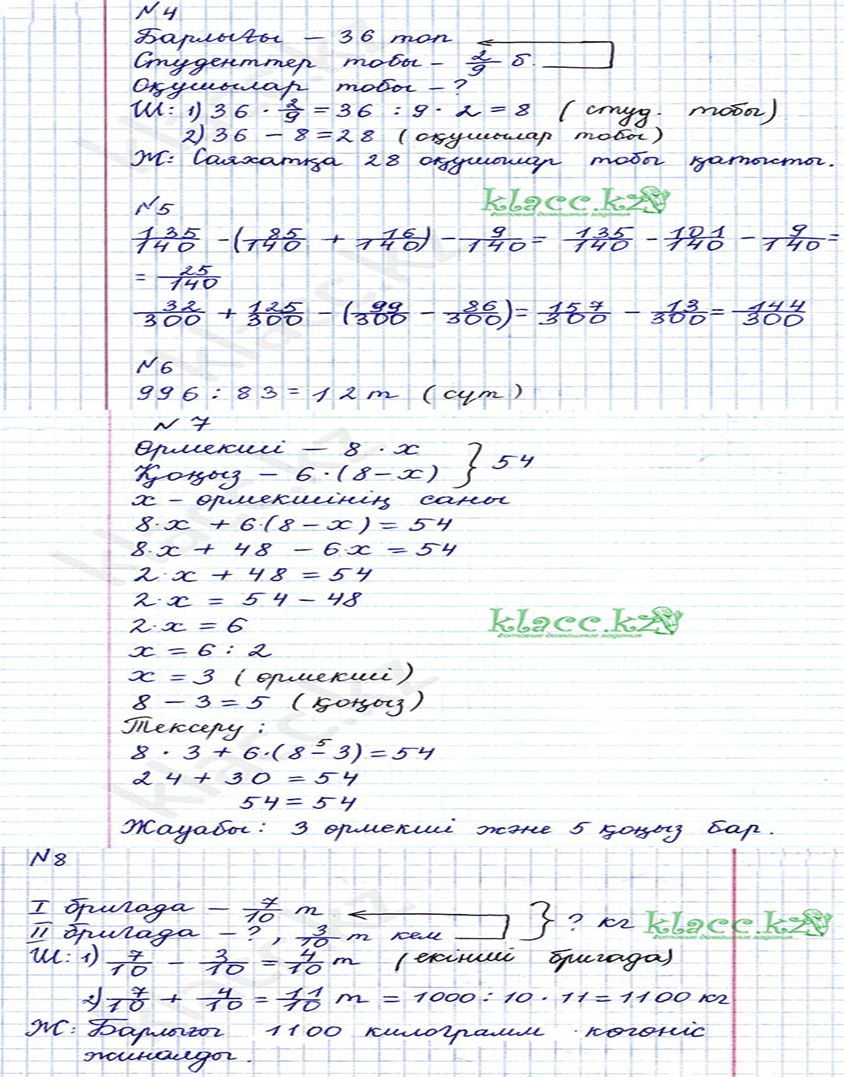 N 4
Барлығы – 36 топ
Студенттер тобы – 2/9 б.
Оқушылар тобы – ?
Ш: 1) 36 · 2/9 = 36 : 9 · 2 = 8 (студ. тобы)
2) 36 – 8 = 28 (оқушылар тобы)
Ж: Саяхатқа 28 оқушылар тобы қатысты.
klacc.kz
N 5
135/140 – (85/140 + 16/140) – 9/140 = 135/140 – 101/140 – 9/140 =
= 25/140
32/300 + 125/300 – (99/300 – 86/300) = 157/300 – 13/300 = 144/300
N 6
996 : 83 = 12 т (сут)
N 7
Өрмекші – 8 · x
Қоңыз – 6 · (8 – x) } 54
x – өрмекшінің саны
8·x + 6·(8 – x) = 54
8·x + 48 – 6·x = 54
2·x + 48 = 54
2·x = 54 – 48
2·x = 6
klacc.kz
готовые домашние задания
x = 6 : 2
x = 3 (өрмекші)
8 – 3 = 5 (қоңыз)
Тексеру:
5
8 · 3 + 6·(8 – 3) = 54
24 + 30 = 54
54 = 54
Жауабы: 3 өрмекші және 5 қоңыз бар.
N 8
I бригада – 7/10 т
II бригада – ?, 3/10 т кем } ? кг
klacc.kz
готовые домашние задания
Ш: 1) 7/10 – 3/10 = 4/10 т (екінші бригада)
2) 7/10 + 4/10 = 11/10 т = 1000 : 10 · 11 = 1100 кг
Ж: Барлығы 1100 килограмм көгөніс
жиналды.